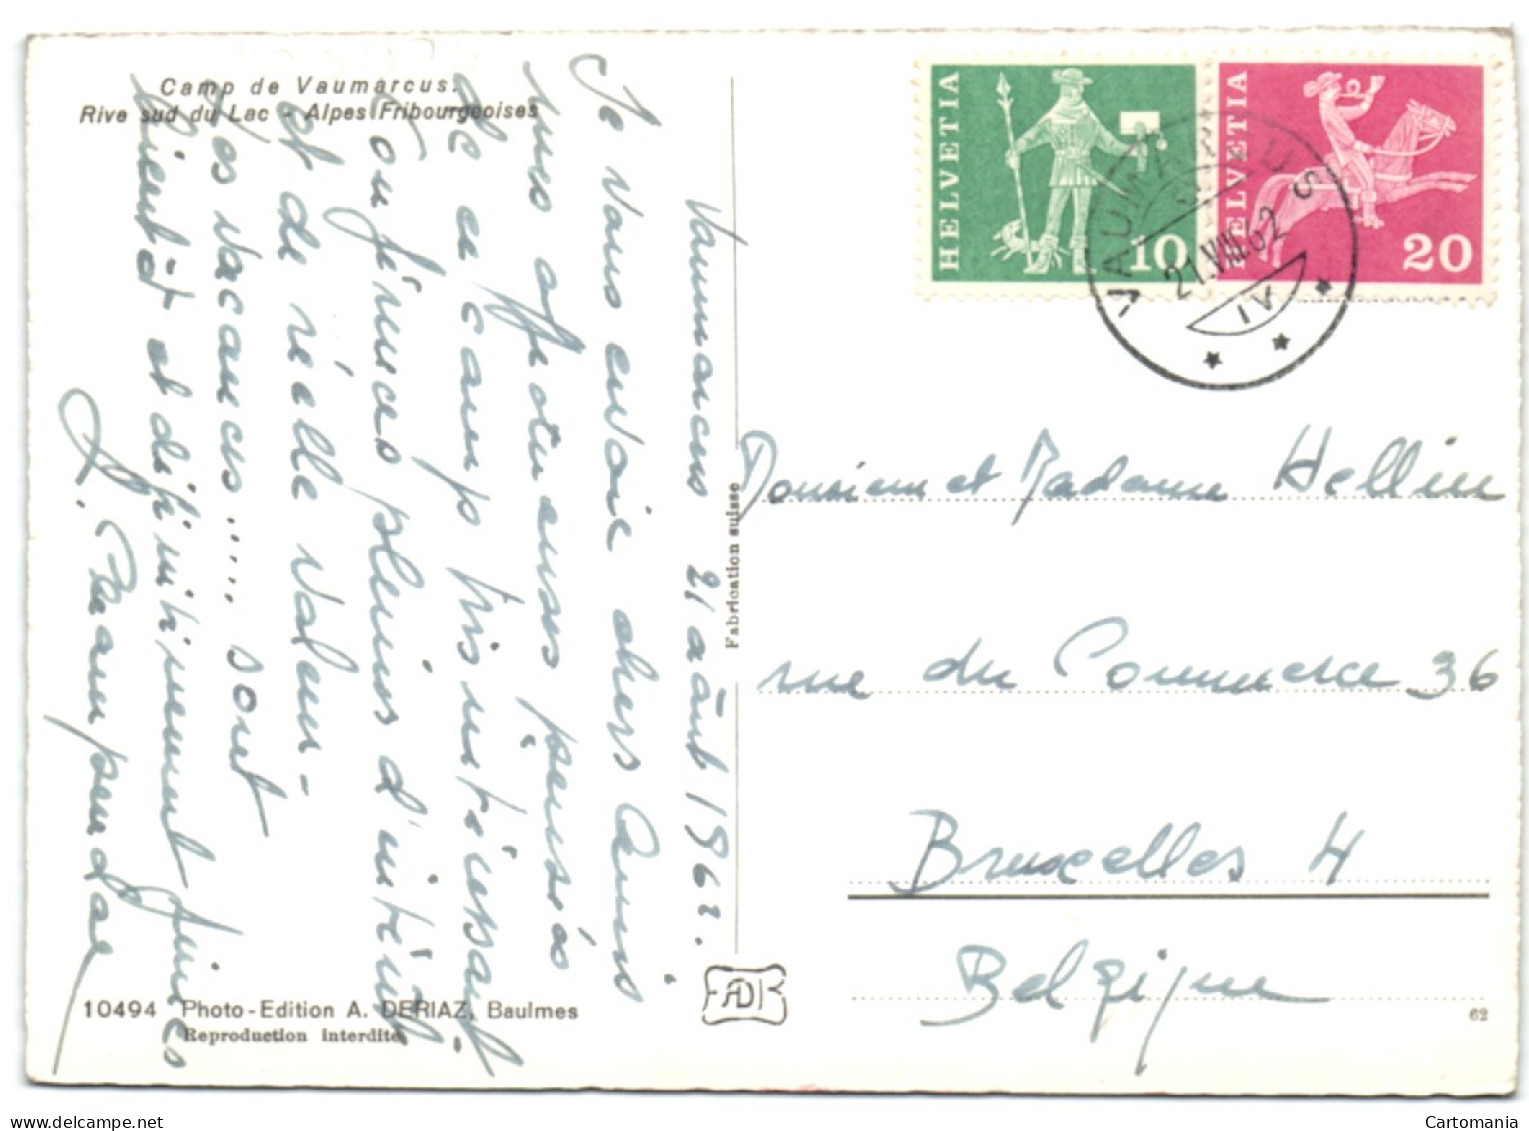 Camp de Vaumarcus.
Rive sud du Lac - Alpes Fribourgeoises
Vaumarcus 21 août 1962.
Je vous envoie chers amis
mes affectueuses pensées
de ce camp très intéressant
Conférences pleines d'intérêt
et de réelle valeur -
Les vacances ..... sont
bientôt et définitivement finies
10494 Photo-Edition A. DERIAZ, Baulmes
Reproduction interdite
Fabrication suisse
HELVETIA
10
HELVETIA
20
VAUMARCUS
21.VIII.62
IV
Monsieur et Madame Hellin
rue du Commerce 36
Bruxelles 4
Belgique
62
www.delcampe.net
Cartomania